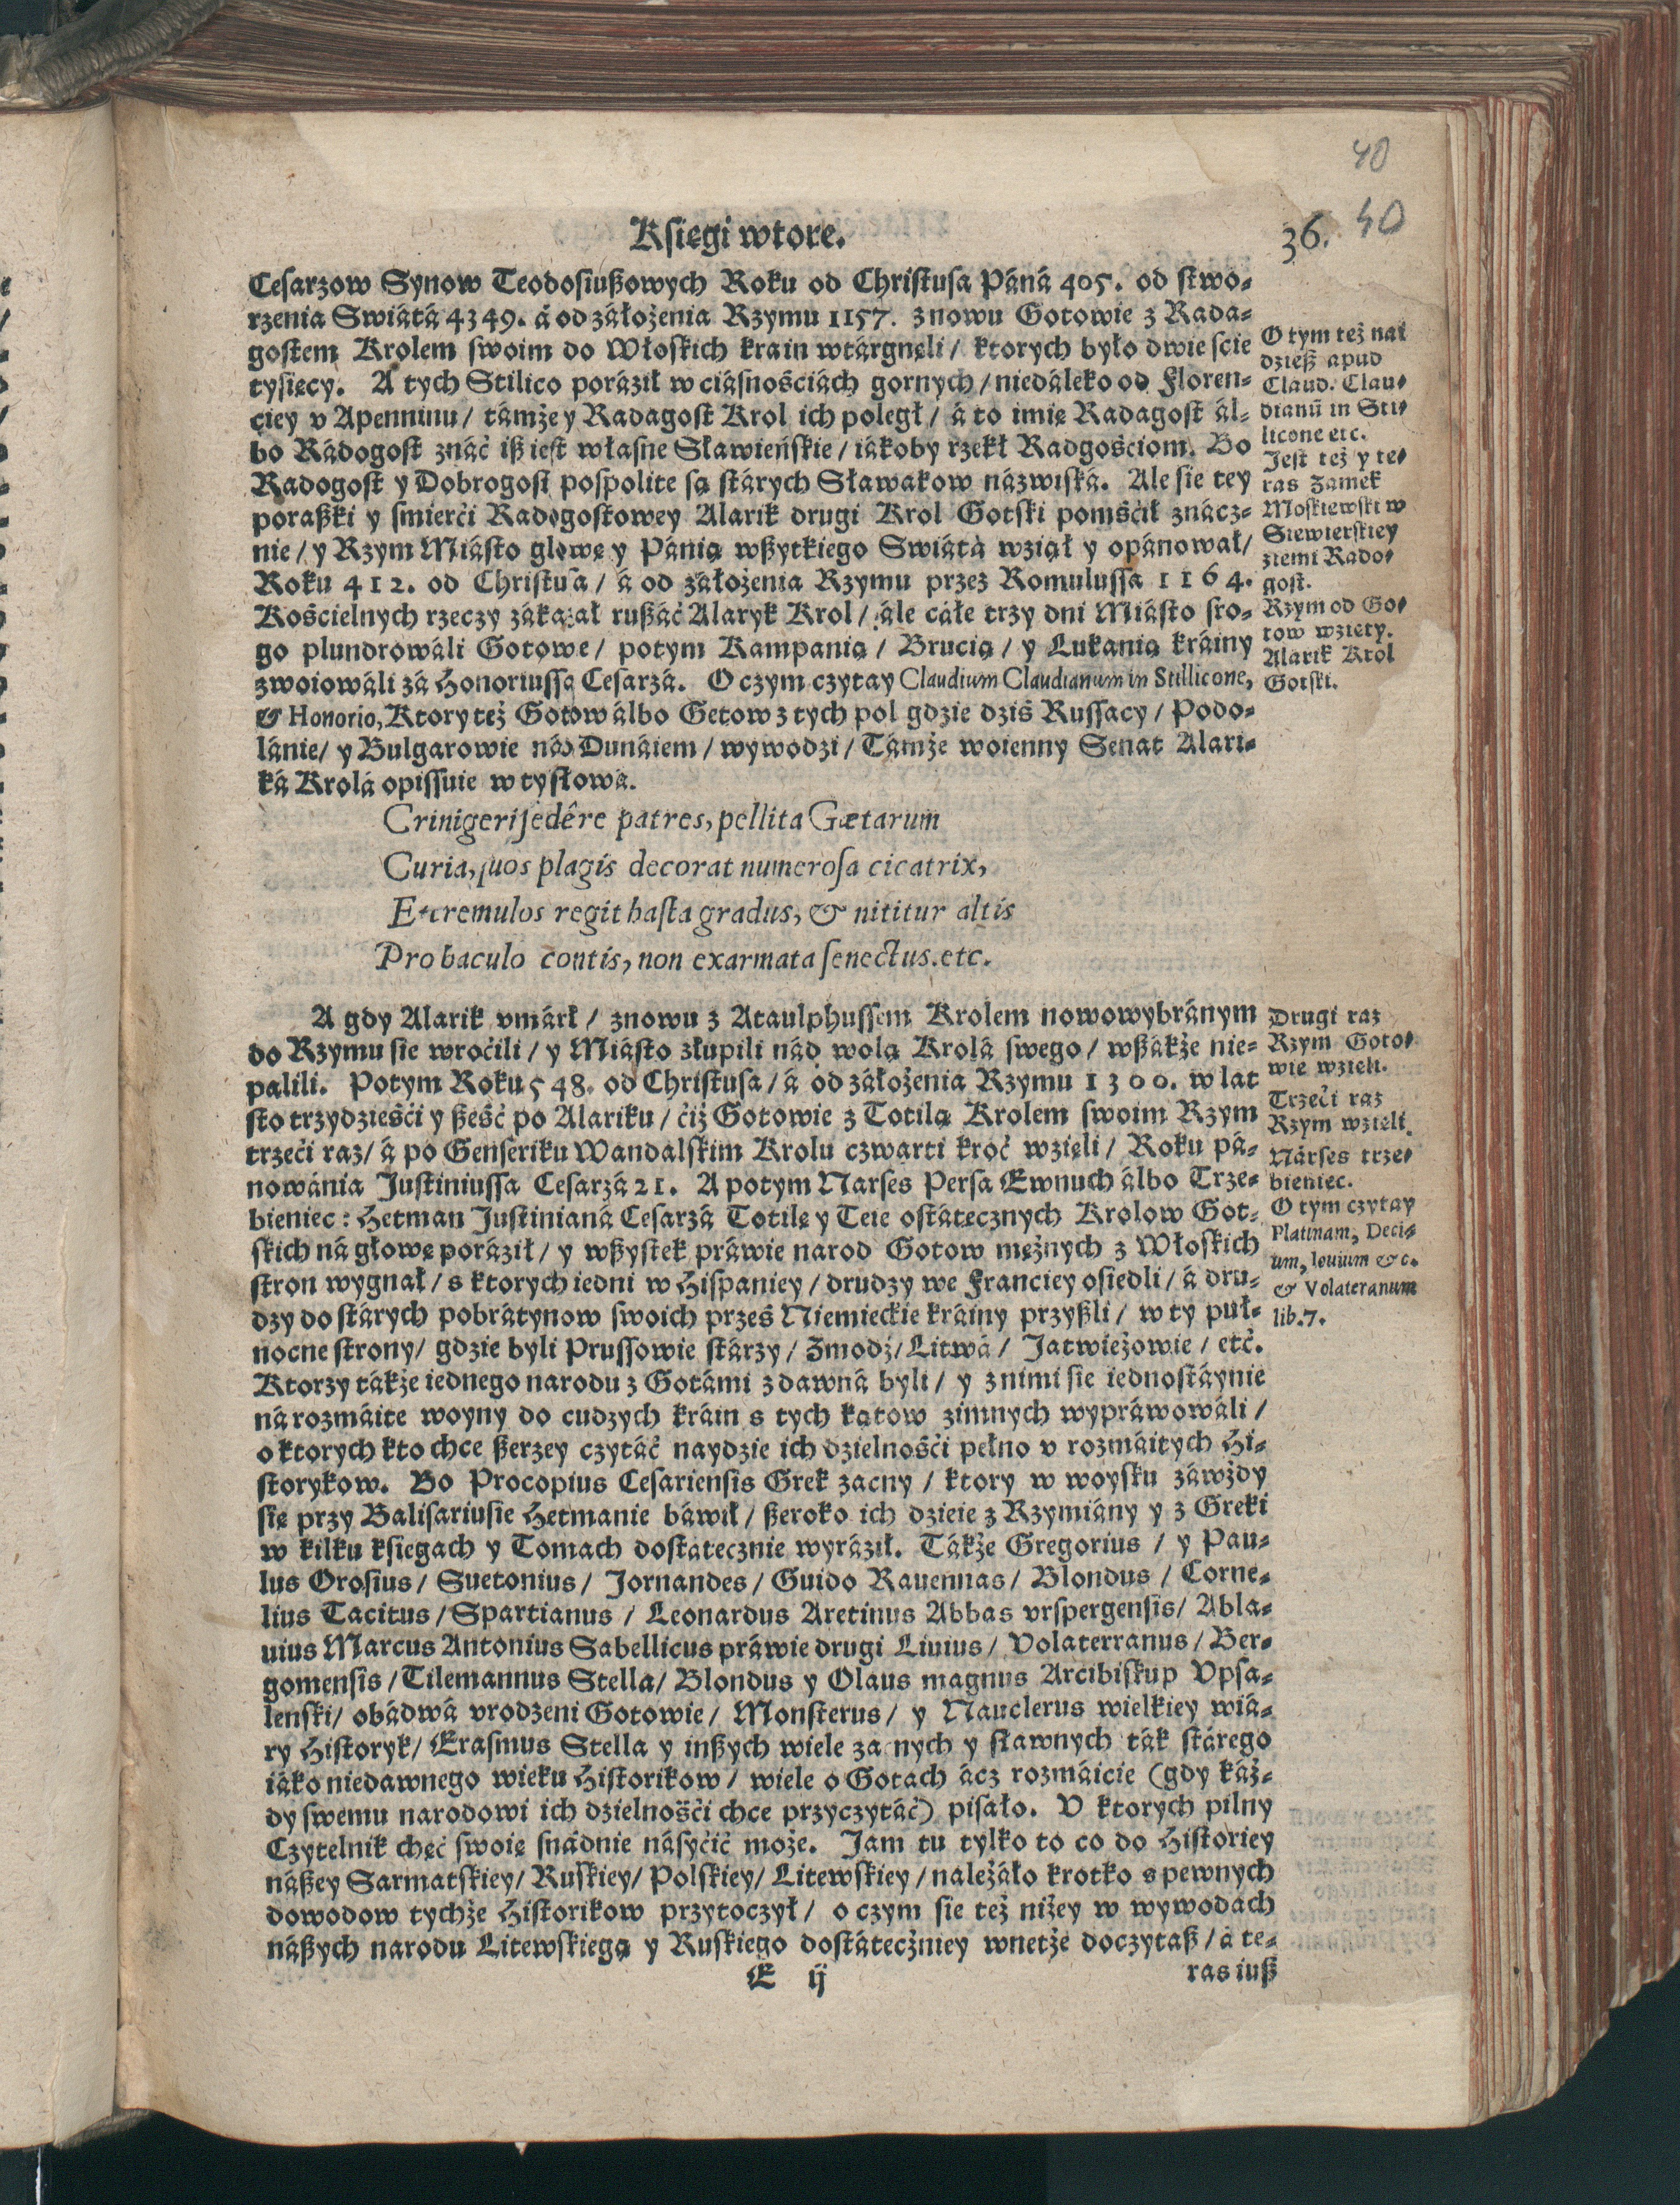 40
Księgi wtore.
36.
40
Cesarzow Synow Teodosiußowych Roku od Christusa Páná 405. od stwo-
rzenia Swiátá 4349. á od záłożenia Rzymu 1157. znowu Gotowie z Rada-
gostem Krolem swoim do Włoskich krain wtárgnęli / ktorych było dwie scie
tysięcy. A tych Stilico poráził w ciásnościách gornych / niedáleko od Floren-
ciey v Apenninu / támże y Radagost Krol ich poległ / á to imię Radagost ál-
bo Rádogost znáć iß iest własne Sławieńskie / iákoby rzekł Radgościom. Bo
Radogost y Dobrogost pospolite są stárych Sławakow názwiská. Ale sie tey
poraßki y smierći Radogostowey Alarik drugi Krol Gotski pomśćił znácz-
nie / y Rzym Miásto głowę y Pánią wßytkiego Swiátá wziął y opánował /
Roku 412. od Christusa / á od záłożenia Rzymu przez Romulussa 1164.
Kościelnych rzeczy zákazał rußáć Alaryk Krol / ále cáłe trzy dni Miásto sro-
go plundrowáli Gotowe / potym Kampanią / Brucią / y Lukanią kráiny
zwoiowáli zá Honoriussa Cesarzá. O czym czytay Claudium Claudianum in Stillicone,
& Honorio, Ktory też Gotow álbo Getow z tych pol gdzie dziś Russacy / Podo-
lánie / y Bulgarowie nád Dunáiem / wywodzi / Támże woienny Senat Alari-
ká Krolá opissuie w ty słowá.
Crinigeri ſedêre patres, pellita Gætarum
Curia, quos plagis decorat numeroſa cicatrix,
Et tremulos regit haſta gradus, & nititur altis
Pro baculo contis, non exarmata ſenectus. etc.
A gdy Alarik vmárł / znowu z Ataulphussem Krolem nowowybránym
do Rzymu sie wroćili / y Miásto złupili nád wolą Krolá swego / wßákże nie-
palili. Potym Roku 548. od Christusa / á od záłożenia Rzymu 1300. w lat
sto trzydzieśći y ßeść po Alariku / ćiż Gotowie z Totilą Krolem swoim Rzym
trzeći raz / á po Genseriku Wandalskim Krolu czwarti kroć wzięli / Roku pá-
nowánia Justiniussa Cesarzá 21. A potym Narses Persa Ewnuch álbo Trze-
bieniec: Hetman Justinianá Cesarzá Totilę y Teie ostátecznych Krolow Got-
skich ná głowę poráził / y wßystek práwie narod Gotow mężnych z Włoskich
stron wygnał / s ktorych iedni w Hispaniey / drudzy we Franciey osiedli / á dru-
dzy do stárych pobrátynow swoich przes Niemieckie kráiny przyßli / w ty puł-
nocne strony / gdzie byli Prussowie stárzy / Zmodź / Litwá / Jatwieżowie / etć.
Ktorzy tákże iednego narodu z Gotámi zdawná byli / y z nimi sie iednostáynie
ná rozmáite woyny do cudzych kráin s tych kątow zimnych wypráwowáli /
o ktorych kto chce ßerzey czytáć naydzie ich dzielnośći pełno v rozmáitych Hi-
storykow. Bo Procopius Cesariensis Grek zacny / ktory w woysku záwżdy
się przy Balisariusie Hetmanie báwił / ßeroko ich dzieie z Rzymiány y z Greki
w kilku księgach y Tomach dostátecznie wyráził. Tákże Gregorius / y Pau-
lus Orosius / Suetonius / Jornandes / Guido Rauennas / Blondus / Corne-
lius Tacitus / Spartianus / Leonardus Aretinus Abbas vrspergensis / Abla-
uius Marcus Antonius Sabellicus práwie drugi Liuius / Volaterranus / Ber-
gomensis / Tilemannus Stella / Blondus y Olaus magnus Arcibiskup Vpsa-
lenski / obádwá vrodzeni Gotowie / Monsterus / y Nauclerus wielkiey wiá-
ry Historyk / Erasmus Stella y inßych wiele za nych y sławnych ták stárego
iáko niedawnego wieku Historikow / wiele o Gotach ácz rozmáicie (gdy káż-
dy swemu narodowi ich dzielnośći chce przyczytáć) pisáło. V ktorych pilny
Czytelnik chęć swoię snádnie násyćić może. Jam tu tylko to co do Historiey
náßey Sarmatskiey / Ruskiey / Polskiey / Litewskiey / należáło krotko s pewnych
dowodow tychże Historikow przytoczył / o czym sie też niżey w wywodách
náßych narodu Litewskiego y Ruskiego dostátecżniey wnetże doczytaß / á te-
E ij
ras iuß
O tym też nai
dzieß apud
Claud. Clau-
dianũ in Sti-
licone etc.
Jest też y te-
ras Zamek
Moskiewski w
Siewierskiey
ziemi Rado-
gost.
Rzym od Go-
tow wzięty.
Alarik Krol
Gotski.
Drugi raz
Rzym Goto-
wie wzięli.
Trzeći raz
Rzym wzięli.
Nárses trze-
bieniec.
O tym czytay
Platinam, Deci-
um, Iouium & c.
& Volateranum
lib. 7.